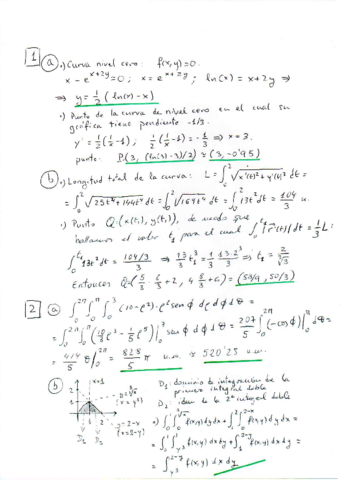 1 a •) Curva nivel cero: f(x,y)=0.
x - e^(x+2y) = 0; x = e^(x+2y); ln(x) = x+2y ⇒
⇒ y = 1/2 (ln(x) - x)
•) Punto de la curva de nivel cero en el cual su
gráfica tiene pendiente -1/3
y' = 1/2 (1/x - 1); 1/2 (1/x - 1) = -1/3 ⇒ x = 3.
punto: P(3, (ln(3)-3)/2) ≈ (3, -0'95)
b •) Longitud total de la curva: L = ∫₀² √(x'(t)² + y'(t)²) dt =
= ∫₀² √(25t⁴ + 144t⁴) dt = ∫₀² √(169t⁴) dt = ∫₀² 13t² dt = 104/3 u.
•) Punto Q(x(t₁), y(t₁)), de modo que
hallamos el valor t₁ para el cual ∫₀^t₁ |r'(t)| dt = 1/3 L:
∫₀^t₁ 13t² dt = (104/3)/3 ⇒ 13/3 t₁³ = 1/3 · 13·2³/3 ⇒ t₁ = 2/∛3
Entonces
2 a ∫₀^2π ∫₀^π ∫₀³ (10-ρ²)·ρ² sen ϕ dρ dϕ dθ =
= 207/5 ∫₀^2π (-cos ϕ)]₀^π dθ =
= 414/5 θ]₀^2π = 828/5 π u.m. ≈ 520'25 u.m.
b x=1
y=2-x
(x=2-y)
D₁ D₂
D₁: dominio de integración de la
primera integral doble
D₂: idem de la 2ª integral doble
•) ∫₀¹ ∫₀^∛x f(x,y) dy dx + ∫₁² ∫₀^(2-x) f(x,y) dy dx =
= ∫₀¹ ∫_y³^1 f(x,y) dx dy + ∫₀¹ ∫₁^(2-y) f(x,y) dx dy =
= ∫₀¹ ∫_y³^(2-y) f(x,y) dx dy